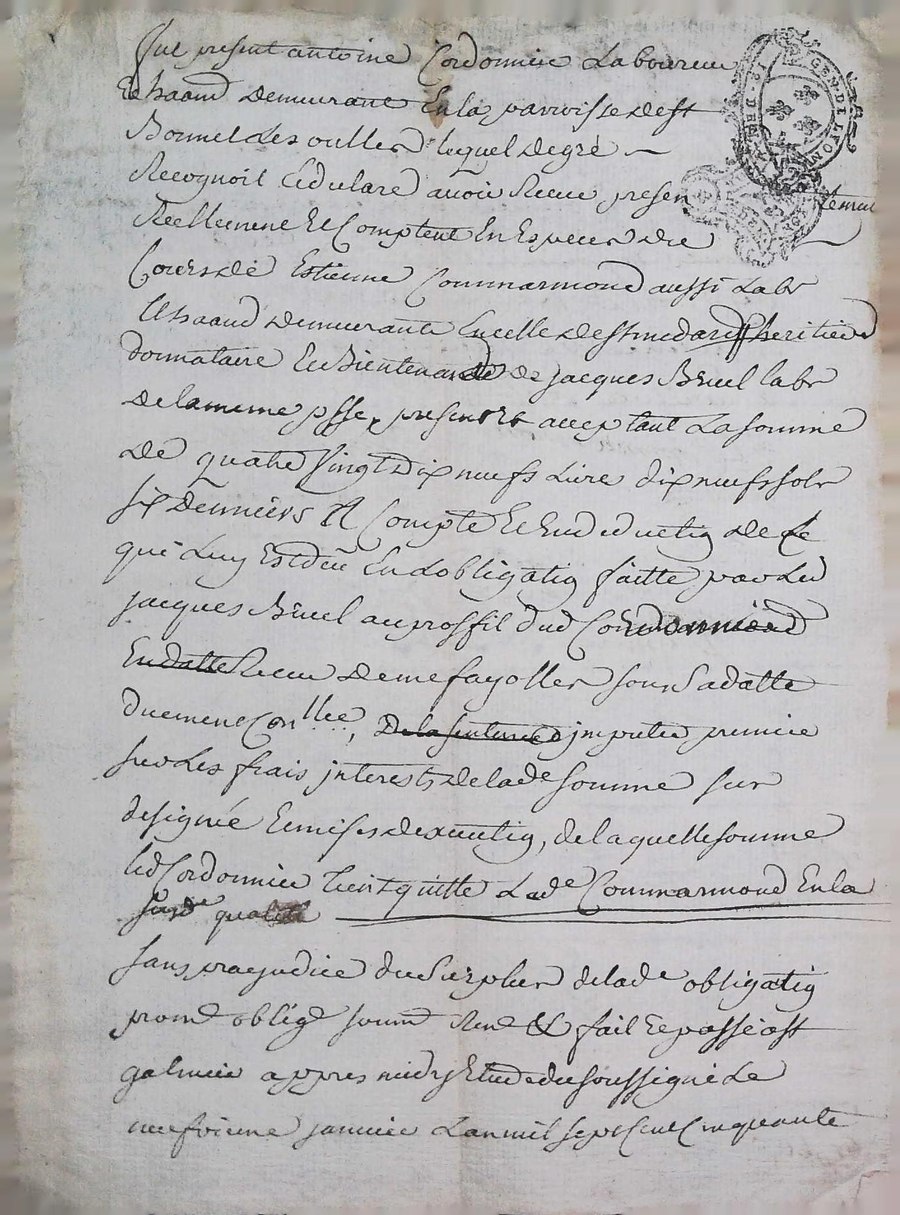 fut present antoine Cordonnier Laboureur
Et haand demeurant En la parroisse de st
Bonnet Les oulles lequel de gré
Recognoit Et declare avoir Receu presentement
Reellement Et Comptent En Especes du
Cours de Estienne Commarmond aussi Labr
demeurant En celle de st medard heritier
donnataire Et Bientenant de jacques Bruel labr
de la meme psse, present Et acceptant La somme
de quatre vingt dix neufs Livre dix neufs sols
six denniers A Compte Et En deductig de Ce
qui Luy Est dû En L obligatig faitte par Led
jacques Bruel au proffit dud Cordonnier
En datte Receu de me fayolles sous Sa datte
duement Conllee, De la sentence imputer premier
sur Les frais jnterests de lade somme sur
designée Et mises dexecutig, de laquelle somme
led Cordonnier tient quitte Lade Commarmond En la
susde qualité
sans prejudice du Surplus de lade obligatig
prome oblige soume Rene &c fait Et passé a st
galmier appres midy Etude du soussigné Le
neufvieme janvier L an mil sept Cent Cinquante